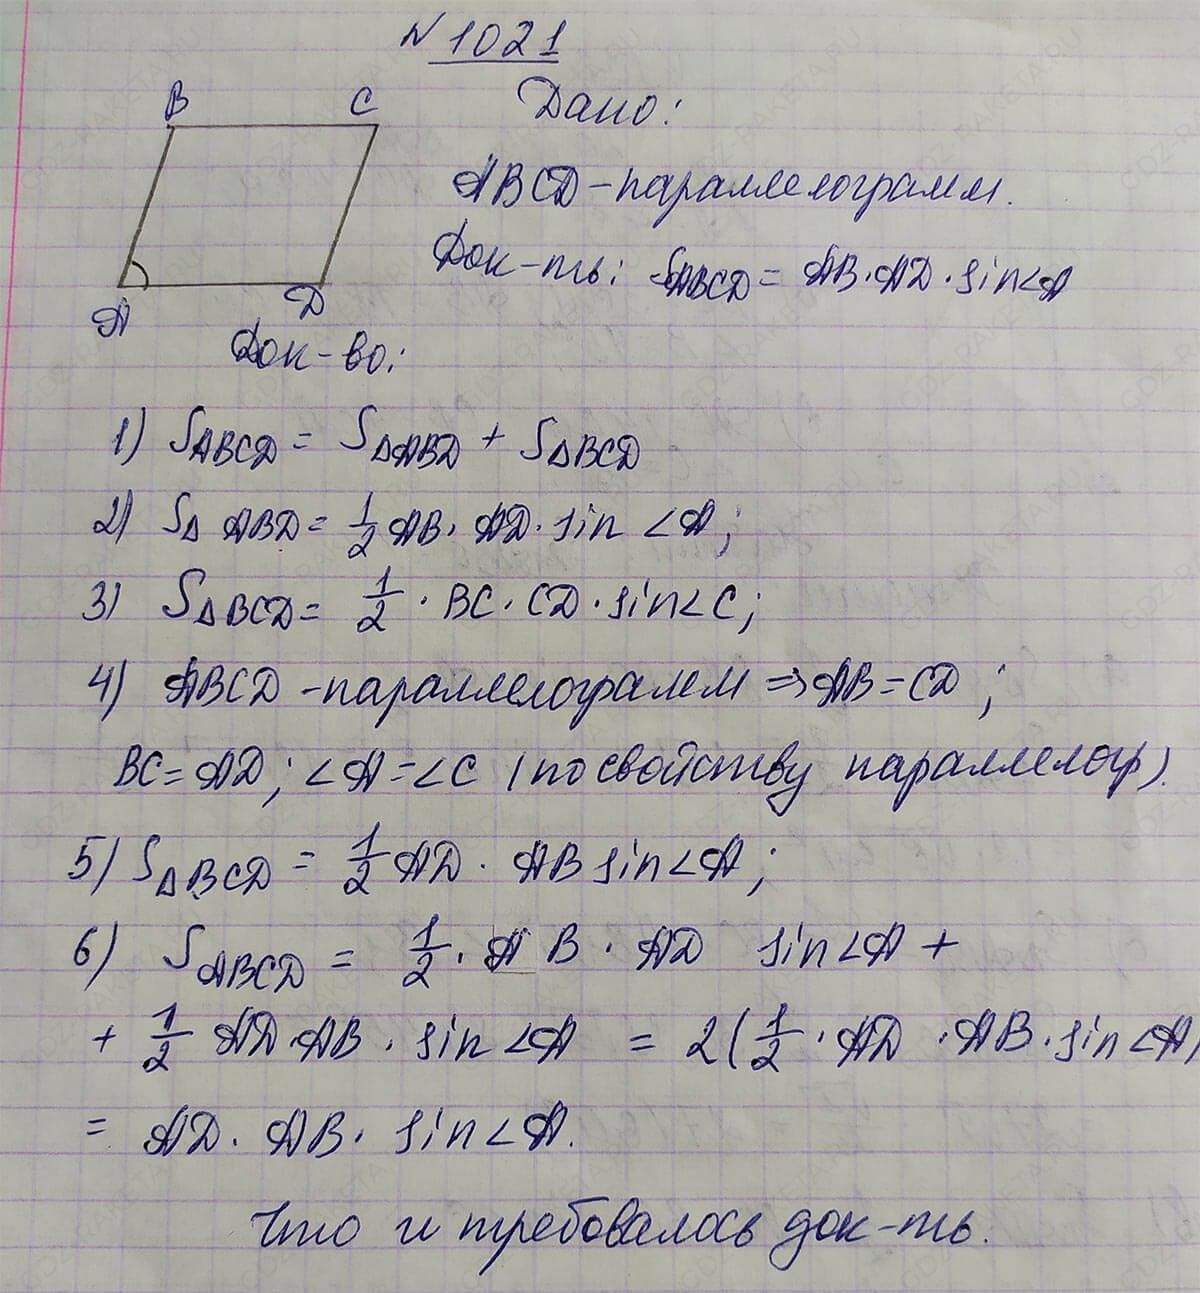 № 1021
B C
Дано:
ABCD - параллелограмм.
Док-ть: SABCD = AB · AD · sin∠A
A D
Док-во:
1) SABCD = S△ABD + S△BCD
2) S△ ABD = 1/2 AB · AD · sin ∠A;
3) S△BCD = 1/2 · BC · CD · sin∠C;
4) ABCD - параллелограмм ⇒ AB = CD;
BC = AD; ∠A = ∠C (по свойству параллелогр).
5) S△BCD = 1/2 AD · AB sin∠A;
6) SABCD = 1/2 · AB · AD sin∠A +
+ 1/2 AD · AB · sin∠A = 2(1/2 · AD · AB · sin∠A)
= AD · AB · sin∠A.
Что и требовалось док-ть.